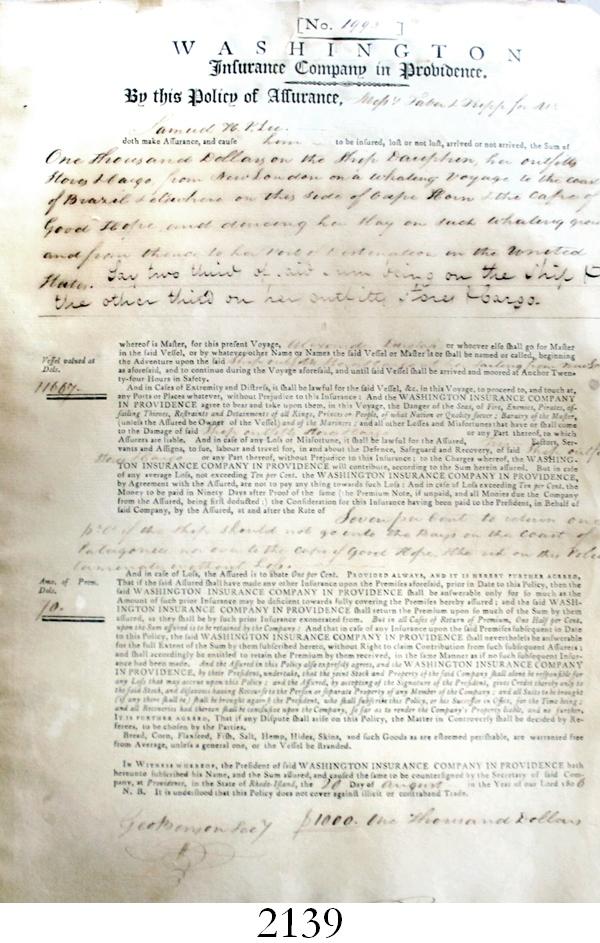 [No. 1992 ]
WASHINGTON
Insurance Company in Providence.
By this Policy of Assurance, Mess.rs Taber & Tripp for Mr
Samuel H. P. Lee
doth make Assurance, and cause him to be insured, lost or not lost, arrived or not arrived, the Sum of
One Thousand Dollars on the Ship Dauphin, her outfitts
Stores & Cargo, from New London on a Whaling Voyage to the coast
of Brazil & elsewhere on this side of Cape Horn & the Cape of
Good Hope, and during her Stay on such Whaling ground
and from thence to her Port of destination in the United
States. Say two third of said Sum being on the Ship &
the other third on her outfitts, Stores & Cargo.
whereof is Master, for this present Voyage, or whoever else shall go for Master
in the said Vessel, or by whatever other Name or Names the said Vessel or Master is or shall be named or called, beginning
Vessel valued at
the Adventure upon the said
Dols.
as aforesaid, and to continue during the Voyage aforesaid, and until said Vessel shall be arrived and moored at Anchor Twen-
ty-four Hours in Safety.
11667.
And in Cases of Extremity and Distress, it shall be lawful for the said Vessel, &c. in this Voyage, to proceed to, and touch at,
any Ports or Places whatever, without Prejudice to this Insurance: And the WASHINGTON INSURANCE COMPANY
IN PROVIDENCE agree to bear and take upon them, in this Voyage, the Danger of the Seas, of Fire, Enemies, Pirates, as-
sailing Thieves, Restraints and Detainments of all Kings, Princes or People, of what Nation or Quality soever; Barratry of the Master,
(unless the Assured be Owner of the Vessel) and of the Mariners; and all other Losses and Misfortunes that have or shall come
to the Damage of said or any Part thereof, to which
Assurers are liable. And in case of any Loss or Misfortune, it shall be lawful for the Assured, Factors, Ser-
vants and Assigns, to sue, labour and travel for, in and about the Defence, Safeguard and Recovery, of said
or any Part thereof, without Prejudice to this Insurance; to the Charges whereof, the WASHING-
TON INSURANCE COMPANY IN PROVIDENCE will contribute, according to the Sum herein assured. But in case
of any average Loss, not exceeding Ten per Cent. the WASHINGTON INSURANCE COMPANY IN PROVIDENCE,
by Agreement with the Assured, are not to pay any thing towards such Loss: And in case of Loss exceeding Ten per Cent. the
Money to be paid in Ninety Days after Proof of the same (the Premium Note, if unpaid, and all Monies due the Company
from the Assured, being first deducted:) the Consideration for this Insurance having been paid to the President, in Behalf of
said Company, by the Assured, at and after the Rate of
Seven per Cent to return one
p Ct if the Ship should not go onto the Bays on the Coast of
Patagonia nor over to the Cape of Good Hope, & the risk on this Policy
terminate without Loss.
Amo. of Prem.
And in case of Loss, the Assured is to abate One per Cent. PROVIDED ALWAYS, AND IT IS HEREBY FURTHER AGREED,
Dols.
That if the said Assured shall have made any other Insurance upon the Premises aforesaid, prior in Date to this Policy, then the
said WASHINGTON INSURANCE COMPANY IN PROVIDENCE shall be answerable only for so much as the
Amount of such prior Insurance may be deficient towards fully covering the Premises hereby assured; and the said WASH-
70.
INGTON INSURANCE COMPANY IN PROVIDENCE shall return the Premium upon so much of the Sum by them
assured, as they shall be by such prior Insurance exonerated from. But in all Cases of Return of Premium, One Half per Cent,
upon the Sum assured is to be retained by the Company: And that in case of any Insurance upon the said Premises subsequent in Date
to this Policy, the said WASHINGTON INSURANCE COMPANY IN PROVIDENCE shall nevertheless be answerable
for the full Extent of the Sum by them subscribed hereto, without Right to claim Contribution from such subsequent Assurers;
and shall accordingly be entitled to retain the Premium by them received, in the same Manner as if no such subsequent Insur-
ance had been made. And the Assured in this Policy also expressly agrees, and the WASHINGTON INSURANCE COMPANY
IN PROVIDENCE, by their President, undertake, that the joint Stock and Property of the said Company shall alone be responsible for
any Loss that may accrue upon this Policy; and the Assured, by accepting of the Signature of the President, gives Credit thereby only to
the said Stock, and disavows having Recourse to the Person or separate Property of any Member of the Company; and all Suits to be brought
(if any there shall be) shall be brought against the President, who shall subscribe this Policy, or his Successor in Office, for the Time being;
and all Recoveries had thereon shall be conclusive upon the Company, so far as to render the Company's Property liable, and no further.
IT IS FURTHER AGREED, That if any Dispute shall arise on this Policy, the Matter in Controversy shall be decided by Re-
ferees, to be chosen by the Parties.
Bread, Corn, Flaxseed, Fish, Salt, Hemp, Hides, Skins, and such Goods as are esteemed perishable, are warranted free
from Average, unless a general one, or the Vessel be stranded.
IN WITNESS WHEREOF, the President of said WASHINGTON INSURANCE COMPANY IN PROVIDENCE hath
hereunto subscribed his Name, and the Sum assured, and caused the same to be countersigned by the Secretary of said Com-
pany, at Providence, in the State of Rhode-Island, the Day of August in the Year of our Lord 180
N. B. It is understood that this Policy does not cover against illicit or contraband Trade.
Geo Benson Secy $1000. One Thousand Dollars
2139